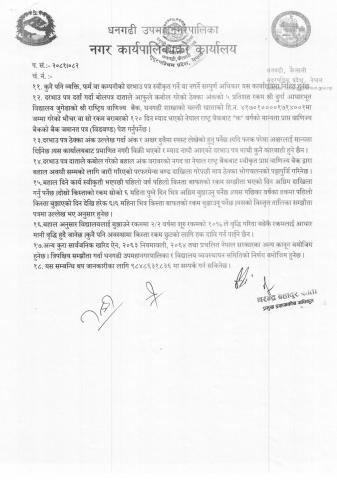 धनगढी उपमहानगरपालिका
नगर कार्यपालिकाको कार्यालय
धनगढी, कैलाली
सुदूरपश्चिम प्रदेश, नेपाल
प. सं.:- २०८१/०८२
च. नं.:-
११. कुनै पनि व्यक्ति, फर्म वा कम्पनीको दरभाउ पत्र स्वीकृत गर्ने वा नगर्ने सम्पूर्ण अधिकार यस कार्यालयमा निहित हुनेछ
१२. दरभाउ पत्र दर्ता गर्दा बोलपत्र दाताले आफुले कबोल गरेको ठेक्का अंकको ५ प्रतिशत रकम श्री दुर्गा आधारभूत
विद्यालय जुगेडाको श्री राष्ट्रिय वाणिज्य बैंक, धनगढी शाखाको चल्ती खाताको हि.नं.
जम्मा गरेको भौचर वा सो रकम बराबरको १२० दिन म्याद भएको नेपाल राष्ट्र बैंकबाट "क" वर्गको मान्यता प्राप्त वाणिज्य
बैंकको बैंक जमानत पत्र (विडवण्ड) पेश गर्नुपर्नेछ।
१३.दरभाउ पत्र ठेक्का अंक उल्लेख गर्दा अंक र अक्षर दुवैमा स्पष्ट लेखेको हुनु पर्नेछ।यदि फरक परेमा अक्षरलाई मान्यता
दिईनेछ।यस कार्यालयबाट प्रमाणित नगरी बिक्री भएको र म्याद नाघी आएको दरभाउ पत्र माथी कुनै कारवाही हुने छैन।
१४.दरभाउ पत्र दाताले कबोल गरेको बहाल अंक बराबरको नगद वा नेपाल राष्ट्र बैंकबाट स्वीकृत प्राप्त वाणिज्य बैंक द्वारा
बहाल अवधी सम्मको लागि जारी गरिएको परफरमेन्स बण्ड दाखिला गरेपछी मात्र ठेक्का भोगचलनको पट्टापुर्जि गरिनेछ।
१५.बहाल दिने कार्य स्वीकृती भएपछी पहिलो वर्ष पहिलो किस्ता बापतको रकम सम्झौता भएको दिन अग्रिम दाखिला
गर्नु पर्नेछ।दोश्रो किस्ताको रकम दोश्रो ६ महिना पुग्ने दिन भित्र अग्रिम बुझाउनु पर्नेछ।यस पछिका वर्षका हकमा पहिलो
किस्ता बुझाएको दिन देखि हरेक ६/६ महिना भित्र किस्ता बापतको रकम बुझाउनु पर्नेछ।यसको विस्तृत तालिका सम्झौता
पत्रमा उल्लेख भए अनुसार हुनेछ।
१६.बहाल अनुसार विद्यालयलाई बुझाउने रकममा २/२ वर्षमा शुरु रकमको १०%ले वृद्धि गरिदा बढेकै रकमलाई आधार
मानी वृद्धि हुदै जानेछ।कुनै पनि अवस्थामा किस्ता रकम छुटको लागि हक दावि गर्न पाईने छैन।
१७.अन्य कुरा सार्वजनिक खरिद ऐन, २०६३ नियमावली, २०६४ तथा प्रचलित नेपाल सरकारका अन्य कानुन बमोजिम
हुनेछ। त्रिपक्षिय सम्झौता गर्दा धनगढी उपमहानगरपालिका र विद्यालय व्यवस्थापन समितिको निर्णय बमोजिम हुनेछ।
१८. यस सम्बन्धि थप जानकारीका लागि ९८४८६३१८३६ मा सम्पर्क गर्न सकिनेछ।
प्रमुख प्रशासकीय अधिकृत